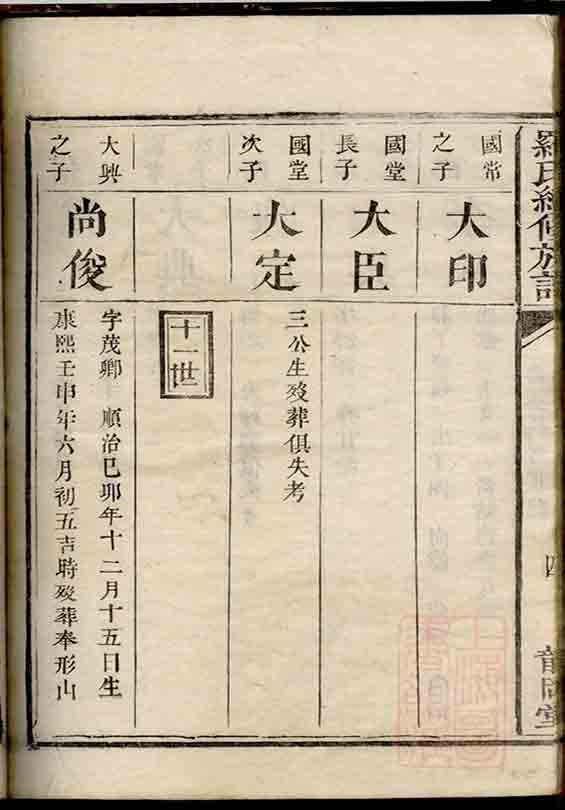 羅氏續修族譜
四
國常
之子
大印
國堂
長子
大臣
國堂
次子
大定
三公生歿葬俱失考
十一世
大興
之子
尚俊
字茂卿 順治巳卯年十二月十五日生
康熙壬申年六月初五吉時歿葬奉形山